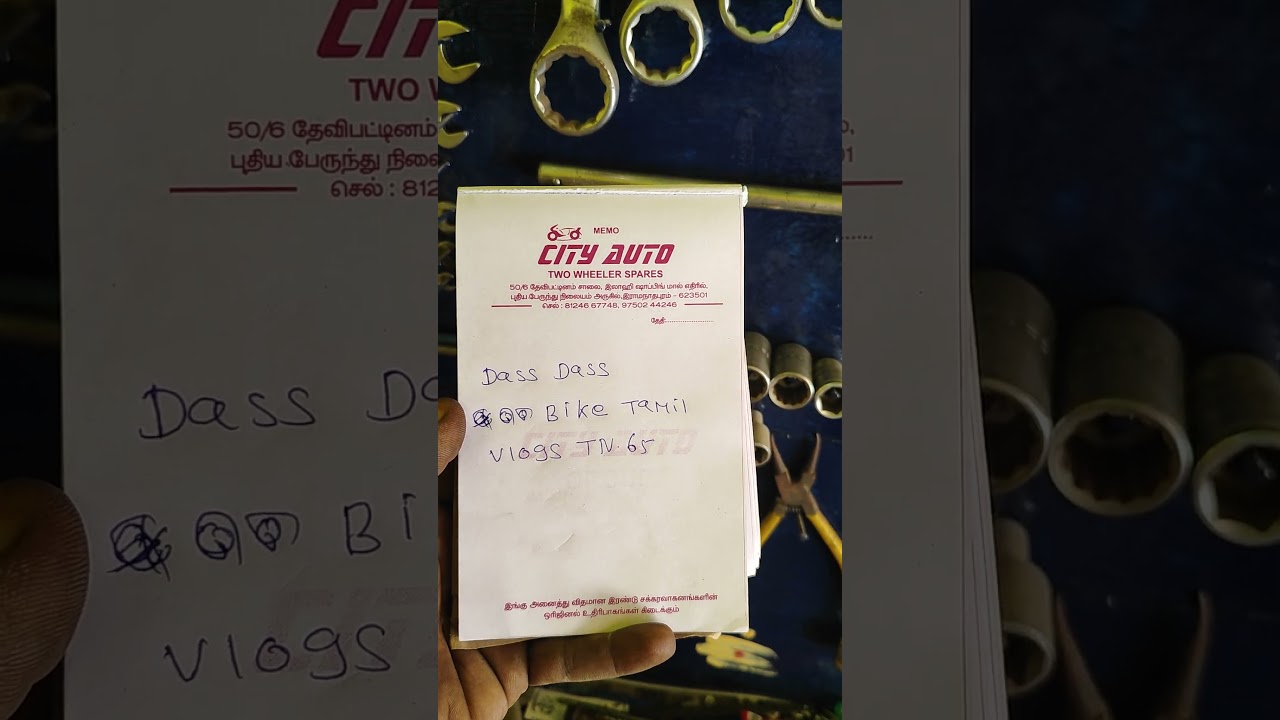 MEMO
CITY AUTO
TWO WHEELER SPARES
50/6 தேவிபட்டினம் சாலை, இலாஹி ஷாப்பிங் மால் எதிரில்,
புதிய பேருந்து நிலையம் அருகில்,இராமநாதபுரம் - 623501
செல் : 81246 67748, 97502 44246
தேதி......................
Dass Dass
Bike Tamil
Vlogs TN.65
CITY AUTO
இங்கு அனைத்து விதமான இரண்டு சக்கரவாகனங்களின்
ஒரிஜினல் உதிரிபாகங்கள் கிடைக்கும்